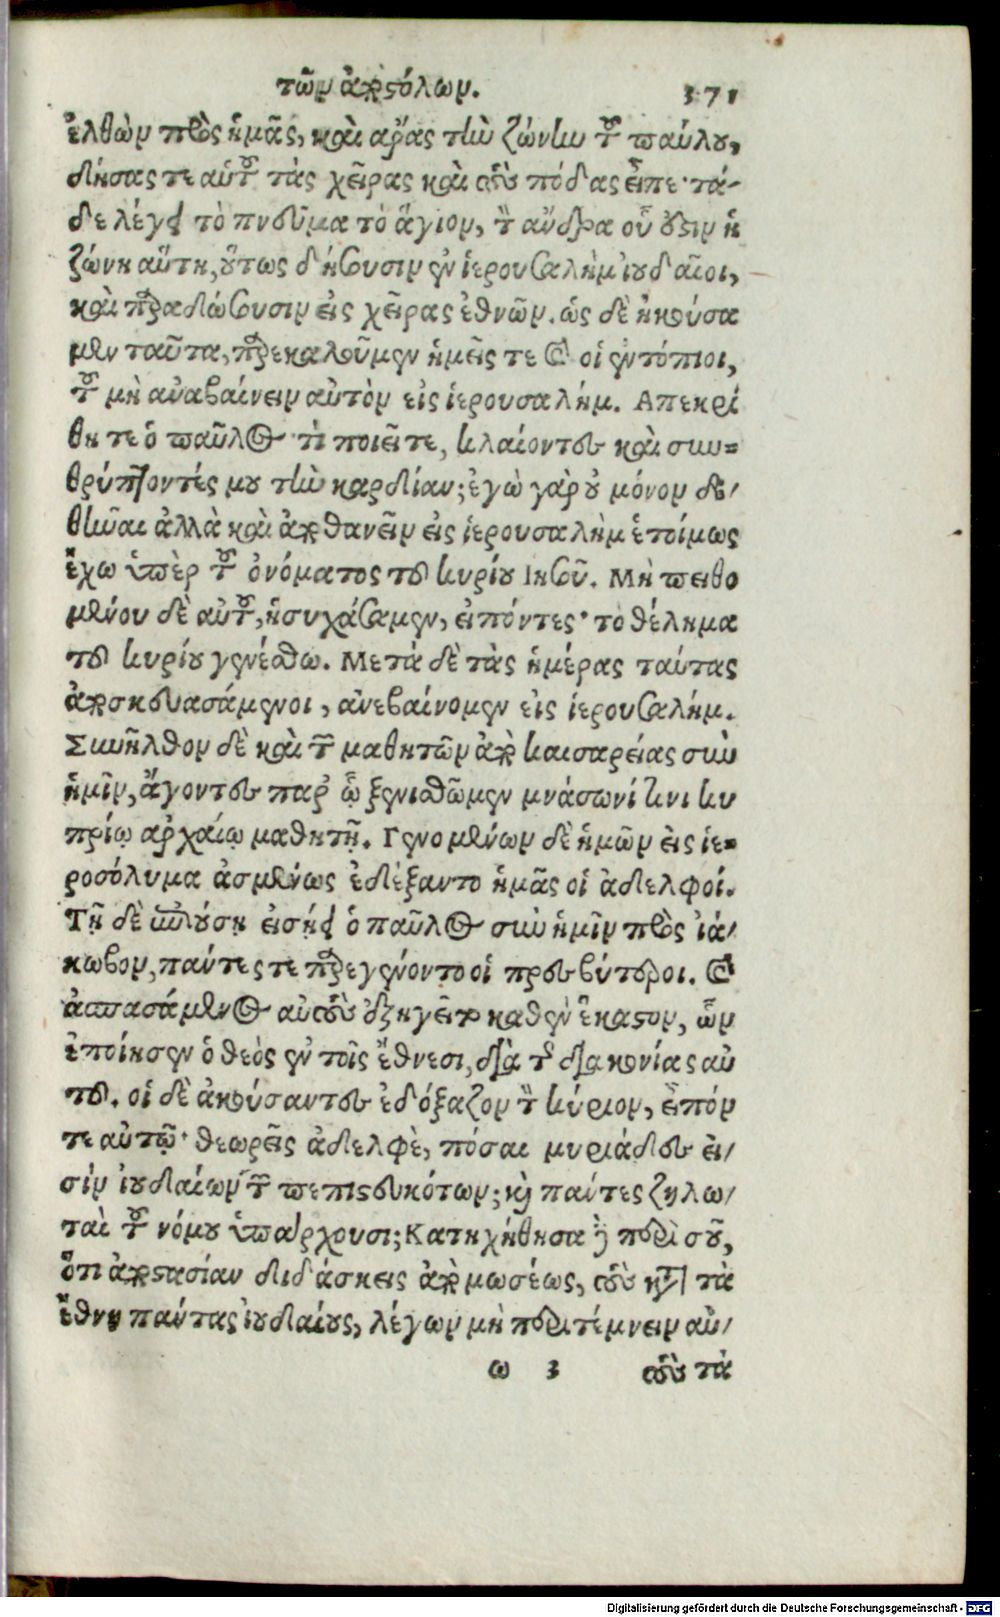 τῶν ἀποστόλων. 371
ἐλθὼν πρὸς ἡμᾶς, καὶ ἄρας τὴν ζώνην τοῦ παύλου,
δήσας τε αὑτοῦ τὰς χεῖρας καὶ τοὺς πόδας εἶπε· τά-
δε λέγει τὸ πνεῦμα τὸ ἅγιον, τὸν ἄνδρα οὗ ἐστιν ἡ
ζώνη αὕτη, οὕτως δήσουσιν ἐν ἱερουσαλὴμ ἰουδαῖοι,
καὶ παραδώσουσιν εἰς χεῖρας ἐθνῶν. ὡς δὲ ἠκούσα
μεν ταῦτα, παρεκαλοῦμεν ἡμεῖς τε καὶ οἱ ἐντόπιοι,
τοῦ μὴ ἀναβαίνειν αὐτὸν εἰς ἱερουσαλήμ. Απεκρί
θη τε ὁ παῦλος· τὶ ποιεῖτε, κλαίοντες καὶ συν=
θρύπτοντές μου τὴν καρδίαν; ἐγὼ γὰρ οὐ μόνον δε/
θῆναι ἀλλὰ καὶ ἀποθανεῖν εἰς ἱερουσαλὴμ ἑτοίμως
ἔχω ὑπὲρ τοῦ ὀνόματος τοῦ κυρίου Ιησοῦ. Μὴ πειθο
μένου δὲ αὐτοῦ, ἡσυχάσαμεν, εἰπόντες· τὸ θέλημα
τοῦ κυρίου γενέσθω. Μετὰ δὲ τὰς ἡμέρας ταύτας
ἀποσκευασάμενοι, ἀνεβαίνομεν εἰς ἱερουσαλήμ.
Συνῆλθον δὲ καὶ τῶν μαθητῶν ἀπὸ καισαρείας σὺν
ἡμῖν, ἄγοντες παρ ᾧ ξενισθῶμεν μνάσωνί τινι κυ
πρίῳ ἀρχαίῳ μαθητῇ. Γενομένων δὲ ἡμῶν εἰς ἱε=
ροσόλυμα ἀσμένως ἐδέξαντο ἡμᾶς οἱ ἀδελφοί.
Τῇ δὲ ἐπιούσῃ εἰσῄει ὁ παῦλος σὺν ἡμῖν πρὸς ἰά/
κωβον, πάντες τε παρεγένοντο οἱ πρεσβύτεροι. καὶ
ἀσπασάμενος αὐτοὺς ἐξηγεῖτο καθ ἓν ἕκαστον, ὧν
ἐποίησεν ὁ θεὸς ἐν τοῖς ἔθνεσι, διὰ τῆς διακονίας αὐ
τοῦ. οἱ δὲ ἀκούσαντες ἐδόξαζον τὸν κύριον, εἶπόν
τε αὐτῷ· θεωρεῖς ἀδελφὲ, πόσαι μυριάδες εἰ/
σίν ἰουδαίων τῶν πεπιστευκότων; καὶ πάντες ζηλω/
ταὶ τοῦ νόμου ὑπάρχουσι; Κατηχήθησαν δὲ περὶ σοῦ,
ὅτι ἀποστασίαν διδάσκεις ἀπὸ μωσέως, τοὺς κατὰ τὰ
ἔθνη πάντας ἰουδαίους, λέγων μὴ περιτέμνειν αὐ/
ω 3 τοὺς τὰ
Digitalisierung gefördert durch die Deutsche Forschungsgemeinschaft - DFG